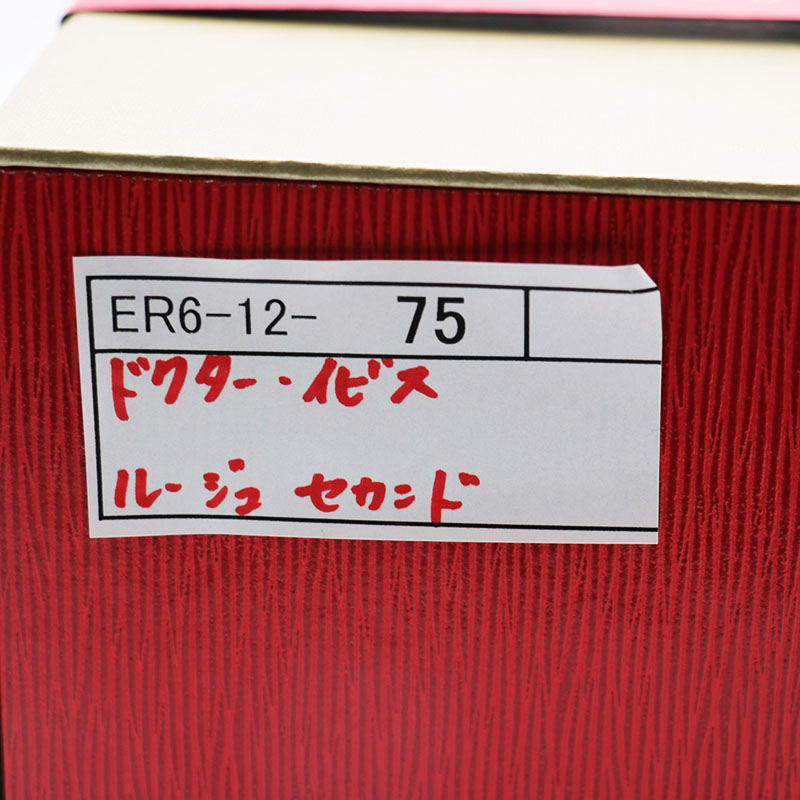 ER6-12- 75
ドクター・イビス
ルージュ セカンド